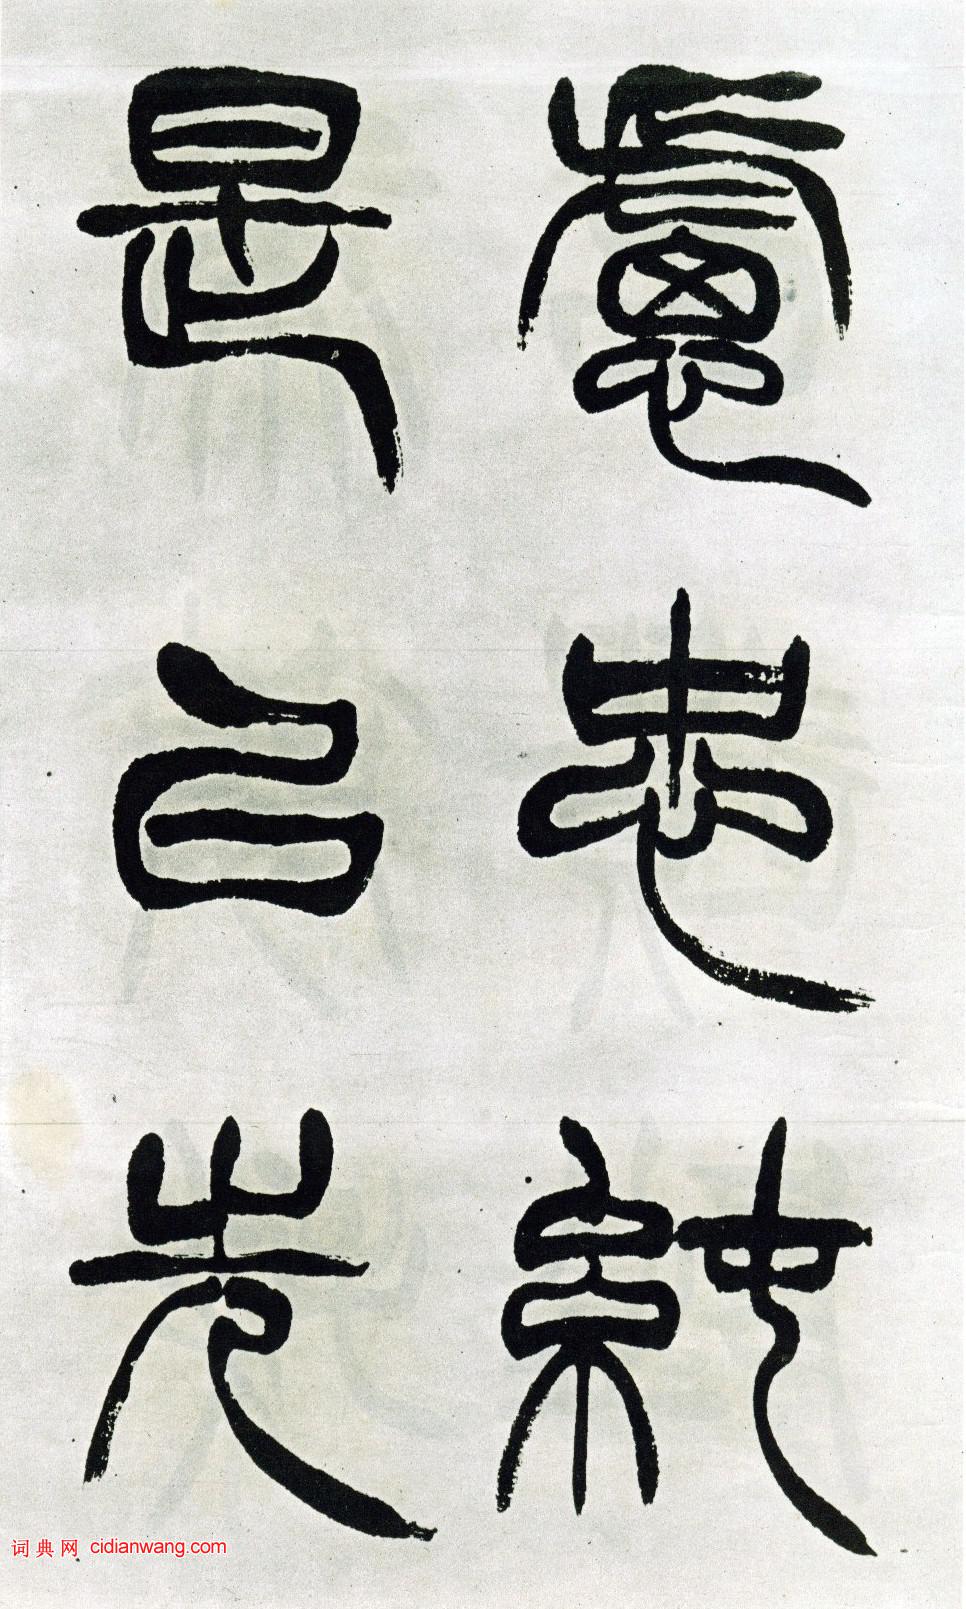 慮忠純
是㠯先
词典网 cidianwang.com